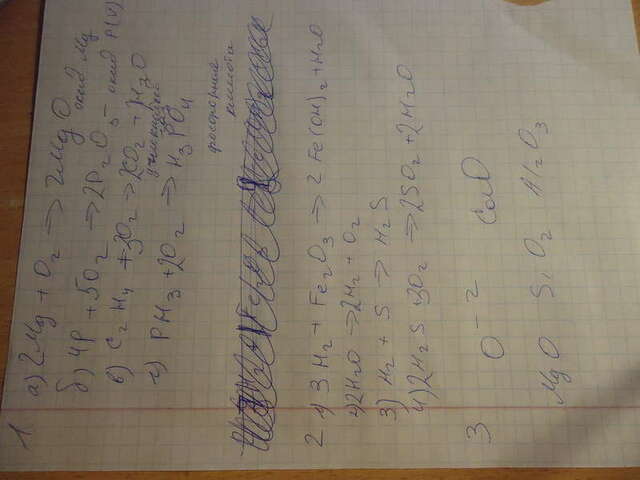 1
а) 2Mg + O2 → 2MgO оксид Mg
б) 4P + 5O2 → 2P2O5 - оксид P(V)
в) C2H4 + 3O2 → 2CO2 + H2O
г) PH3 + 2O2 → H3PO4
фосфорная
кислота
2 1) 3H2 + Fe2O3 → 2 Fe(OH)2 + H2O
2) 2H2O → 2H2 + O2
3) H2 + S → H2S
4) 2H2S 3O2 → 2SO2 + 2H2O
3 O -2 CaO
MgO SiO2 Al2O3